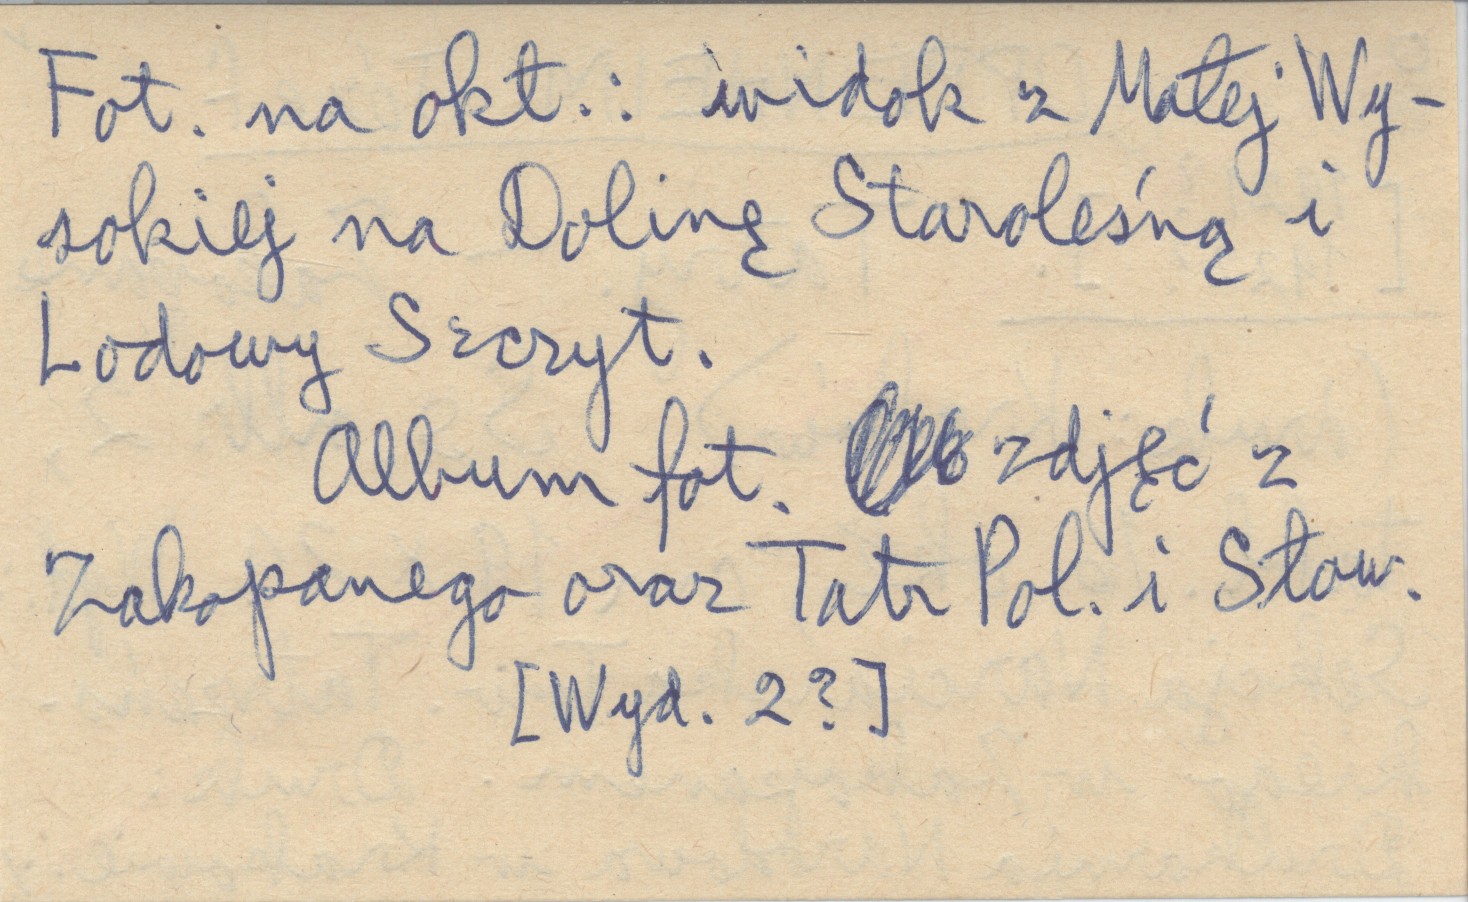 Fot. na okł.: widok z Małej Wy-
sokiej na Dolinę Staroleśną i
Lodowy Szczyt.
Album fot. zdjęć z
Zakopanego oraz Tatr Pol. i Słow.
[Wyd. 2?]